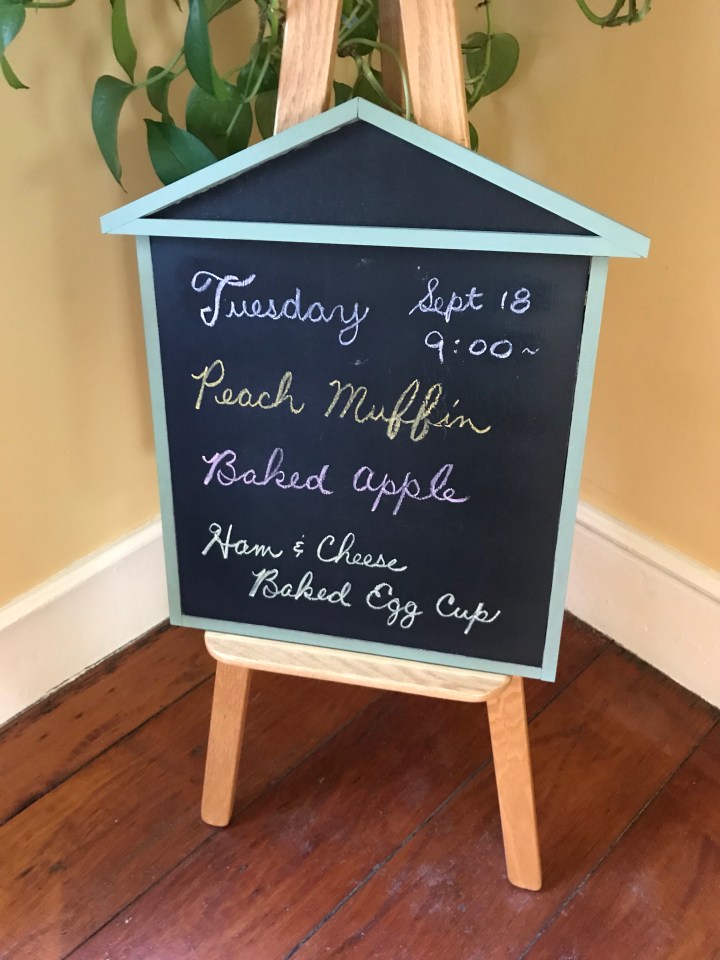 Tuesday Sept 18
9:00~
Peach Muffin
Baked Apple
Ham & Cheese
Baked Egg Cup